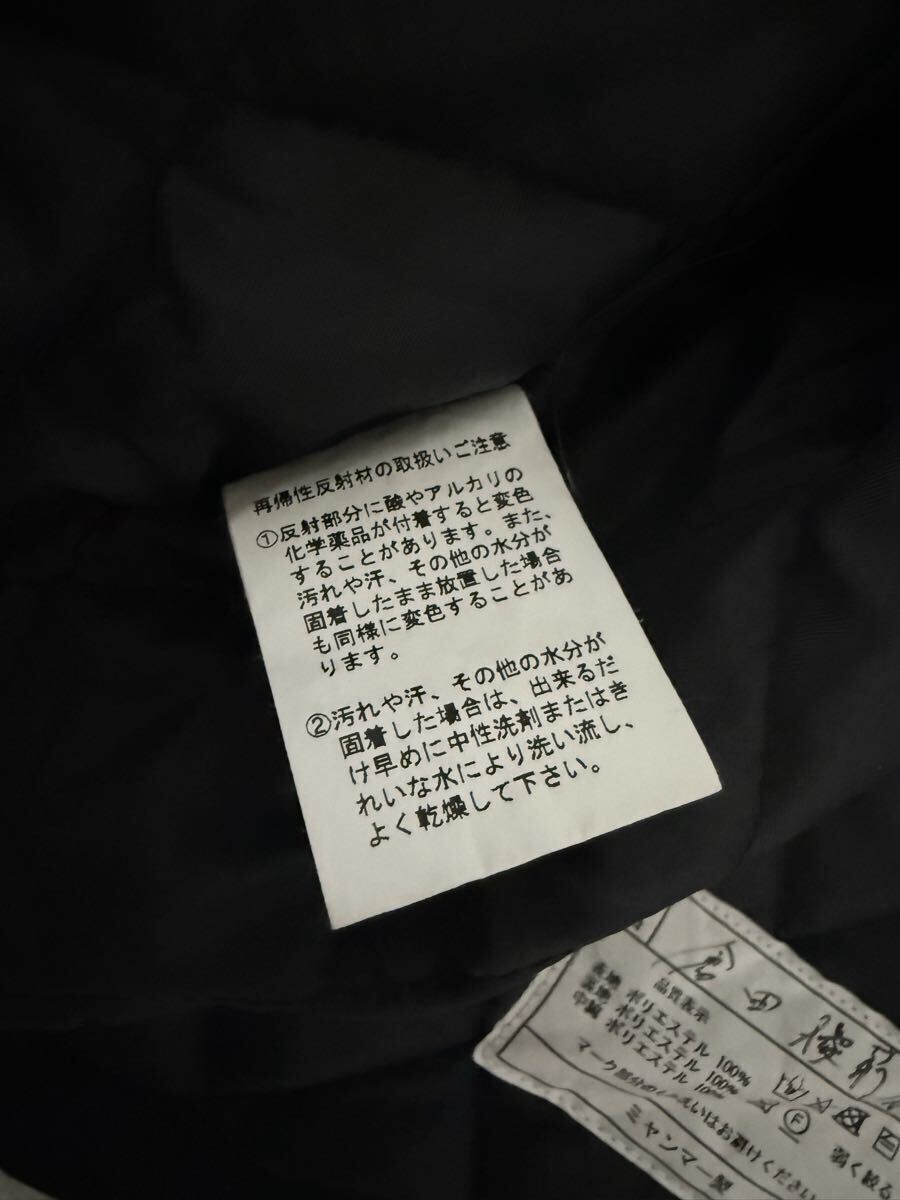 再帰性反射材の取扱いご注意
①反射部分に酸やアルカリの
化学薬品が付着すると変色
することがあります。また、
汚れや汗、その他の水分が
固着したまま放置した場合
も同様に変色することがあ
ります。
②汚れや汗、その他の水分が
固着した場合は、出来るだ
け早めに中性洗剤またはき
れいな水により洗い流し、
よく乾燥して下さい。
品質表示
表地 ポリエステル 100%
裏地 ポリエステル 100%
中綿 ポリエステル
F
弱く絞る
マーク部分の
はお避けください
ミャンマー製